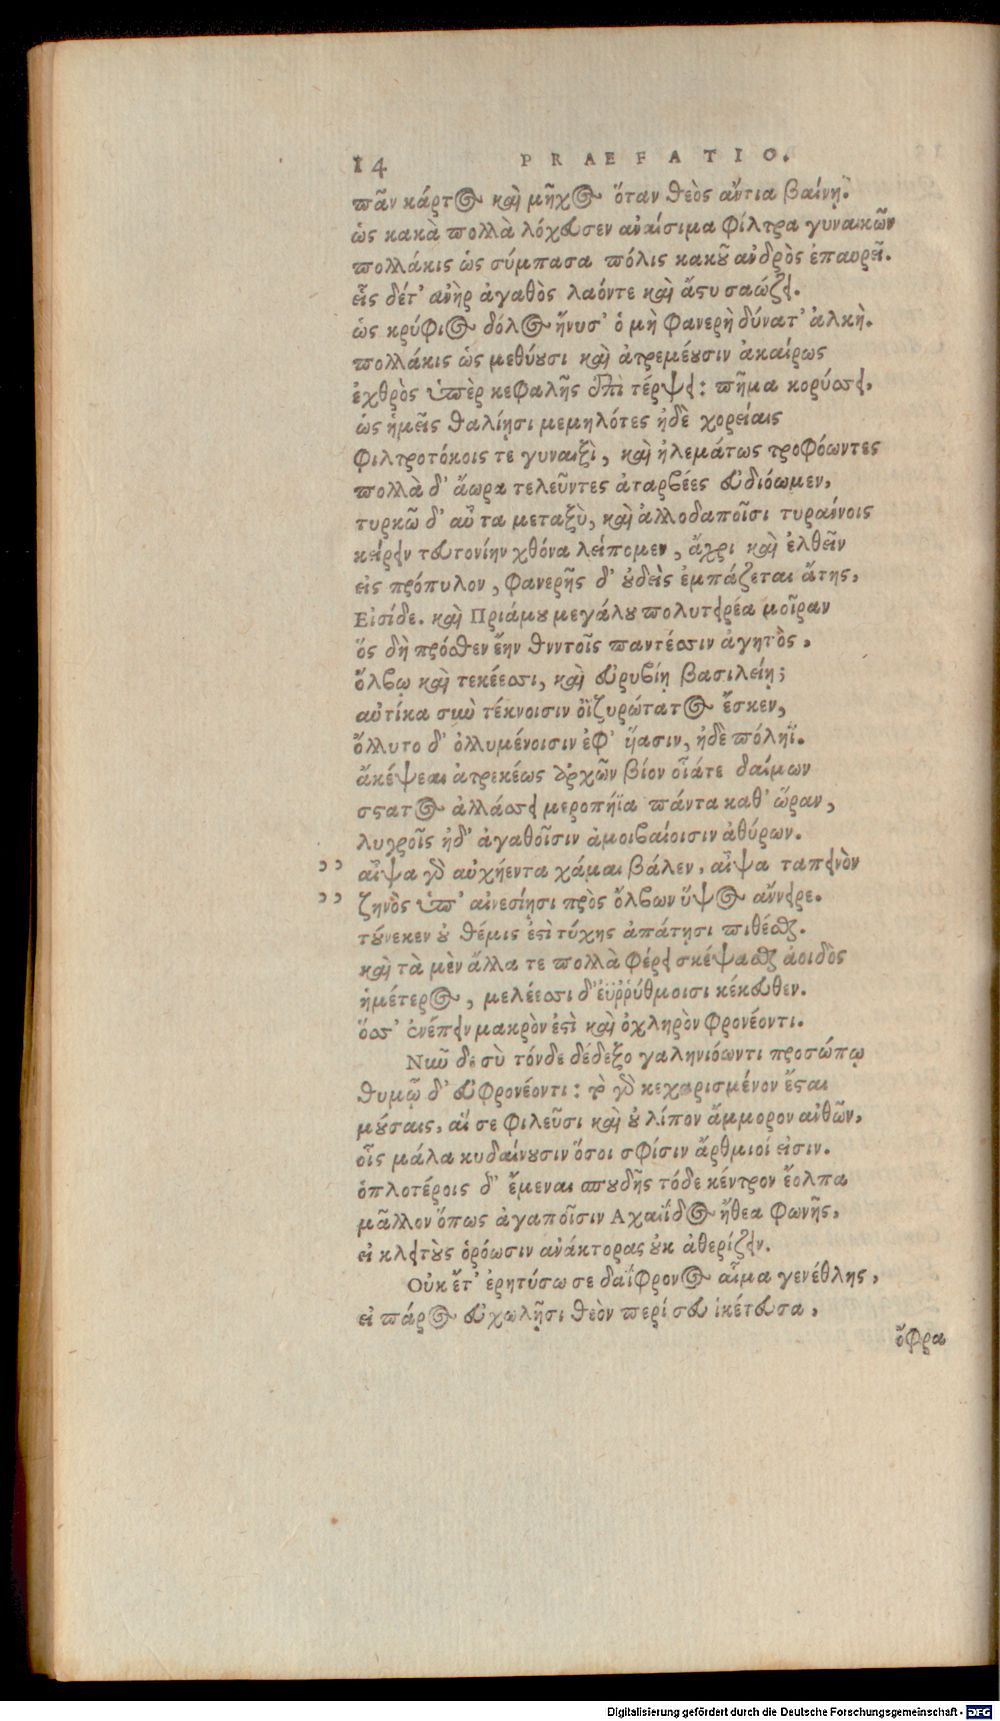 14 PRAEFATIO.
πᾶν κάρτος καὶ μῆχος ὅταν θεὸς ἄντια βαίνῃ.
ὡς κακὰ πολλὰ λόχευσεν ἀναίσιμα φίλτρα γυναικῶν
πολλάκις ὡς σύμπασα πόλις κακοῦ ἀνδρὸς ἐπαυρεῖ.
εἷς δέτ' ἀνὴρ ἀγαθὸς λαόντε καὶ ἄστυ σαώζει.
ὡς κρύφιος δόλος ἤνυσ' ὁ μὴ φανερὴ δύνατ' ἀλκὴ.
πολλάκις ὡς μεθύουσι καὶ ἀτρεμέουσιν ἀκαίρως
ἐχθρὸς ὑπὲρ κεφαλῆς ἐπὶ τέρψει: πῆμα κορύσσει,
ὡς ἡμεῖς θαλίῃσι μεμηλότες ἠδὲ χορείαις
φιλτροτόκοις τε γυναιξὶ, καὶ ἠλεμάτως τροφόωντες
πολλὰ δ' ἄωρα τελεῦντες ἀταρβέες εὐδιόωμεν,
τυρκῶ δ' αὖ τα μεταξὺ, καὶ ἀλλοδαποῖσι τυραίνοις
κείρειν τευτονίην χθόνα λείπομεν, ἄχρι καὶ ἐλθεῖν
εἰς πρόπυλον, φανερῆς δ' οὐδεὶς ἐμπάζεται ἄτης,
Εἰσίδε. καὶ Πριάμου μεγάλου πολυτειρέα μοῖραν
ὅς δὴ πρόσθεν ἔην θνητοῖς παντέσσιν ἀγητὸς,
ὄλβῳ καὶ τεκέεσσι, καὶ εὐρυβίῃ βασιλείῃ;
αὐτίκα σὺν τέκνοισιν ὀϊζυρώτατος ἔσκεν,
ὄλλυτο δ' ὀλλυμένοισιν ἐφ' ὑάσιν, ἠδὲ πόληϊ.
ἀκέψεαι ἀτρεκέως ἀρχῶν βίον οἷάτε δαίμων
σστατος ἀλλάσσει μεροπήϊα πάντα καθ' ὥραν,
λυγροῖς ἠδ' ἀγαθοῖσιν ἀμοιβαίοισιν ἀθύρων.
,, αἶψα γὰρ αὐχήεντα χάμαι βάλεν, αἶψα ταπεινὸν
,, ζηνὸς ὑπ' αἰνεσίῃσι πρὸς ὄλβων ὕψος ἄννειρε.
τούνεκεν οὐ θέμις ἐστὶ τύχης ἀπάτῃσι πιθέσθαι.
καὶ τὰ μὲν ἄλλα τε πολλὰ φέρει σκέψασθαι ἀοιδὸς
ἡμέτερος, μελέεσσι δ' ἐϋῤῥύθμοισι κέκευθεν.
ὅσσ' ἐνέπειν μακρὸν ἐστὶ καὶ ὀχληρὸν φρονέοντι.
Νῦν δε σὺ τόνδε δέδεξο γαληνιόωντι προσώπῳ
θυμῷ δ' εὐφρονέοντι: τὸ γὰρ κεχαρισμένον ἔσται
μούσαις, αἵ σε φιλεῦσι καὶ οὐ λίπον ἄμμορον αὐθῶν,
οἷς μάλα κυδαίνουσιν ὅσοι σφίσιν ἄρθμιοί εἰσιν.
ὁπλοτέροις δ' ἔμεναι σπουδῆς τόδε κέντρον ἔολπα
μᾶλλον ὅπως ἀγαποῖσιν Αχαιΐδος ἤθεα φωνῆς,
εἰ κλειτοὺς ὁρόωσιν ἀνάκτορας οὐκ ἀθερίζειν.
Οὐκ ἔτ' ἐρητύσω σε δαΐφρονος αἷμα γενέθλης,
εἰ πάρος εὐχωλῇσι θεὸν περί σευ ἱκέτευσα,
ὄφρα
Digitalisierung gefördert durch die Deutsche Forschungsgemeinschaft - DFG